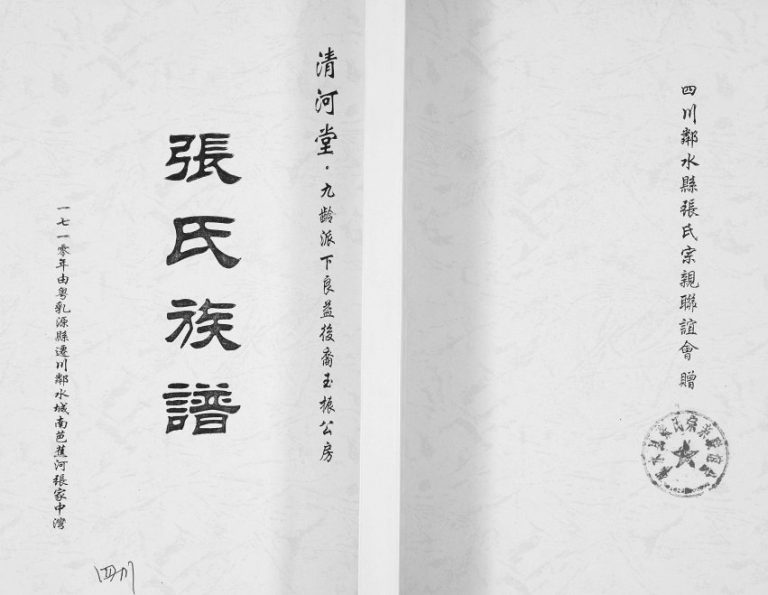 四川鄰水縣張氏宗親聯誼會贈
清河堂·九齡派下良益後裔玉振公房
張氏族譜
一七一零年由粵乳源縣遷川鄰水城南芭蕉河張家中灣
四川